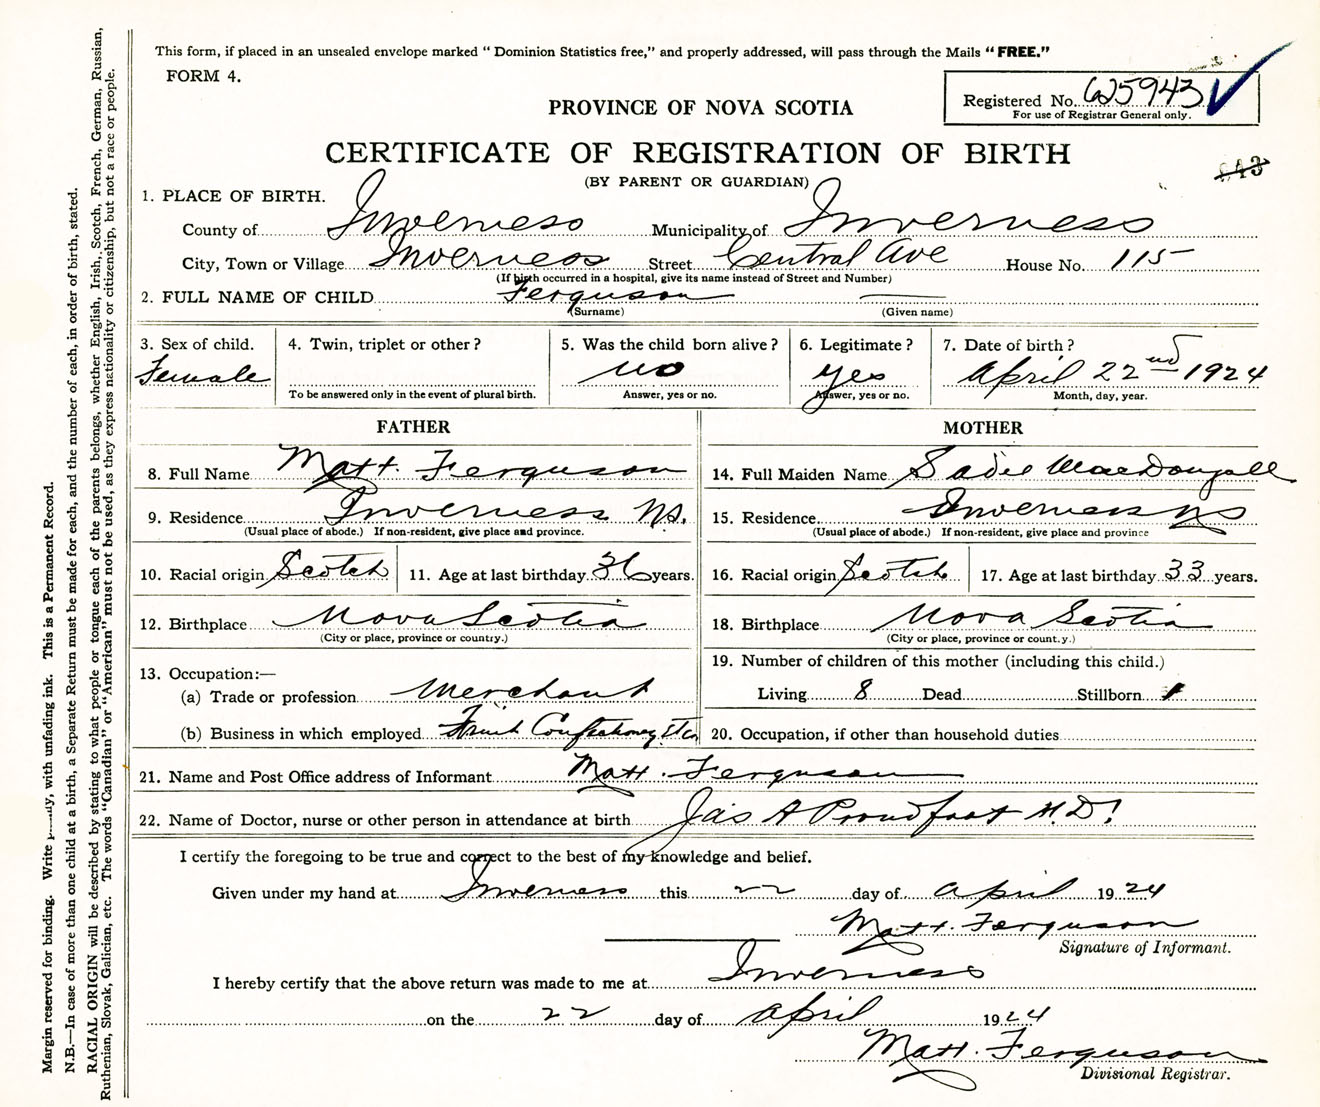 This form, if placed in an unsealed envelope marked " Dominion Statistics free," and properly addressed, will pass through the Mails "FREE."
FORM 4.
Registered No. 625943
For use of Registrar General only.
PROVINCE OF NOVA SCOTIA
CERTIFICATE OF REGISTRATION OF BIRTH
(BY PARENT OR GUARDIAN)
1. PLACE OF BIRTH.
County of Inverness Municipality of Inverness
City, Town or Village Inverness Street Central Ave House No. 115
(If birth occurred in a hospital, give its name instead of Street and Number)
2. FULL NAME OF CHILD Ferguson —
(Surname) (Given name)
3. Sex of child. Female
4. Twin, triplet or other?
To be answered only in the event of plural birth.
5. Was the child born alive? no
Answer, yes or no.
6. Legitimate? yes
Answer, yes or no.
7. Date of birth? April 22nd 1924
Month, day, year.
FATHER
8. Full Name Matt. Ferguson
9. Residence Inverness N.S.
(Usual place of abode.) If non-resident, give place and province.
10. Racial origin Scotch 11. Age at last birthday 36 years.
12. Birthplace Nova Scotia
(City or place, province or country.)
13. Occupation:—
(a) Trade or profession Merchant
(b) Business in which employed Fruit Confectionery Etc
MOTHER
14. Full Maiden Name Sadie MacDougall
15. Residence Inverness NS
(Usual place of abode.) If non-resident, give place and province
16. Racial origin Scotch 17. Age at last birthday 33 years.
18. Birthplace Nova Scotia
(City or place, province or count.y.)
19. Number of children of this mother (including this child.)
Living 8 Dead Stillborn 1
20. Occupation, if other than household duties
21. Name and Post Office address of Informant Matt. Ferguson
22. Name of Doctor, nurse or other person in attendance at birth Jas A Proudfoot M.D.
I certify the foregoing to be true and correct to the best of my knowledge and belief.
Given under my hand at Inverness this 22 day of April 1924
Matt. Ferguson
Signature of Informant.
I hereby certify that the above return was made to me at Inverness
on the 22 day of April 1924
Matt. Ferguson
Divisional Registrar.
Margin reserved for binding. Write with unfading ink. This is a Permanent Record.
N.B.—In case of more than one child at a birth, a Separate Return must be made for each, and the number of each, in order of birth, stated.
RACIAL ORIGIN will be described by stating to what people or tongue each of the parents belongs, whether English, Irish, Scotch, French, German, Russian,
Ruthenian, Slovak, Galician, etc. The words "Canadian" or "American" must not be used, as they express nationality or citizenship, but not a race or people.